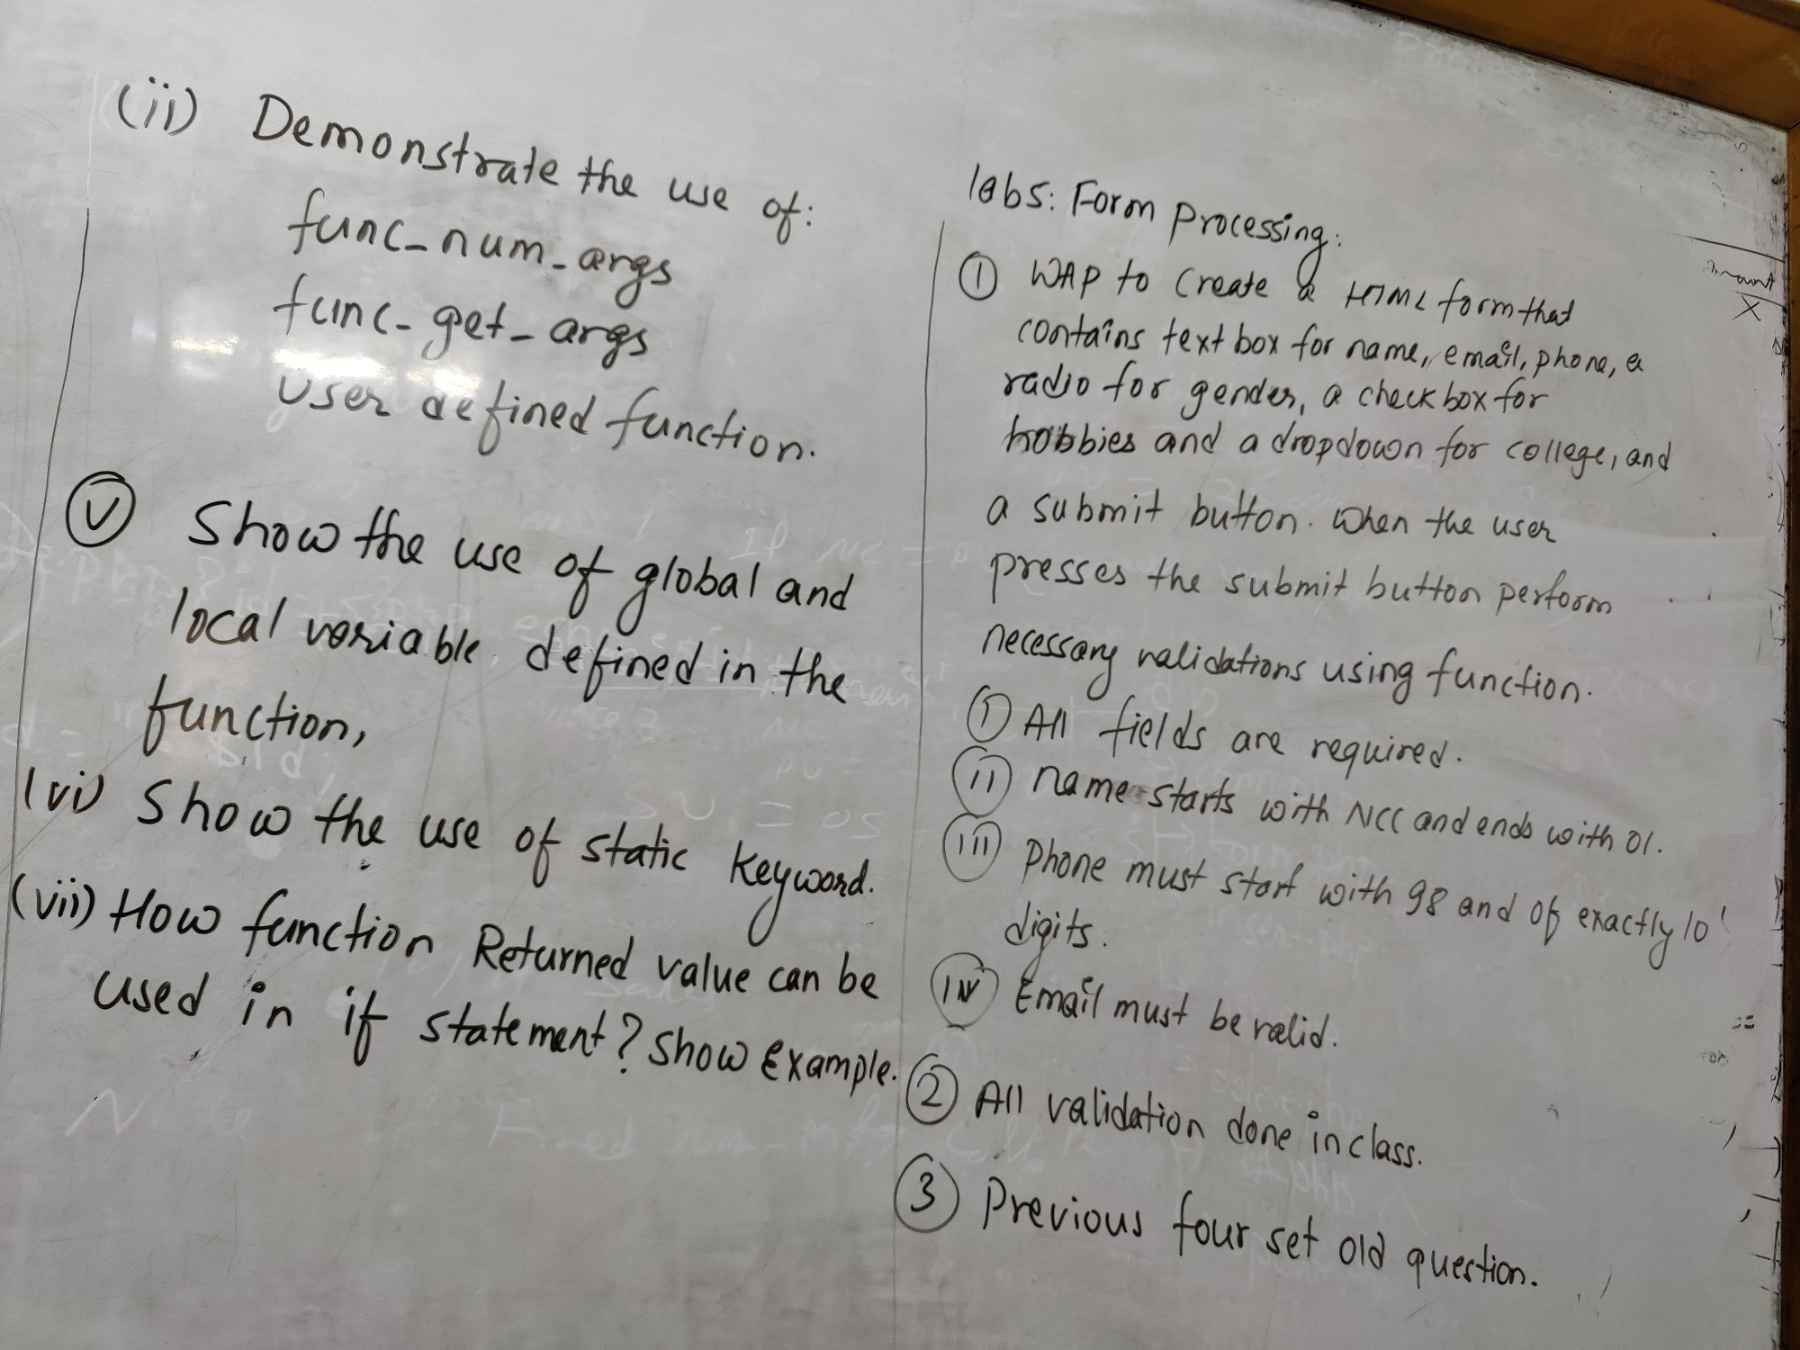 (ii) Demonstrate the use of:
func_num_args
func_get_args
User defined function.
(v) Show the use of global and
local variable defined in the
function,
(vi) Show the use of static keyword.
(vii) How function Returned value can be
used in if statement? Show Example.
lab5: Form Processing:
(1) WAP to Create a HTML form that
contains text box for name, email, phone, a
radio for gender, a checkbox for
hobbies and a dropdown for college, and
a submit button. When the user
presses the submit button perform
necessary validations using function.
(i) All fields are required.
(ii) name starts with NCC and ends with 01.
(iii) Phone must start with 98 and of exactly 10
digits.
(iv) Email must be valid.
(2) All validation done in class.
(3) Previous four set old question.